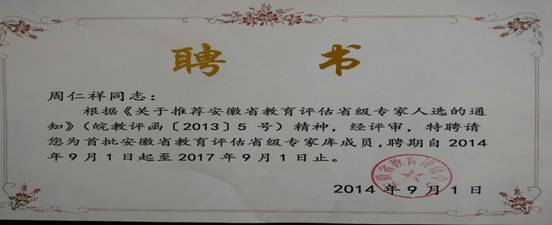 聘书
周仁祥同志：
根据《关于推荐安徽省教育评估省级专家人选的通
知》（皖教评函〔2013〕5 号）精神，经评审，特聘请
您为首批安徽省教育评估省级专家库成员，聘期自 2014
年 9 月 1 日起至 2017 年 9 月 1 日止。
2014 年 9 月 1 日